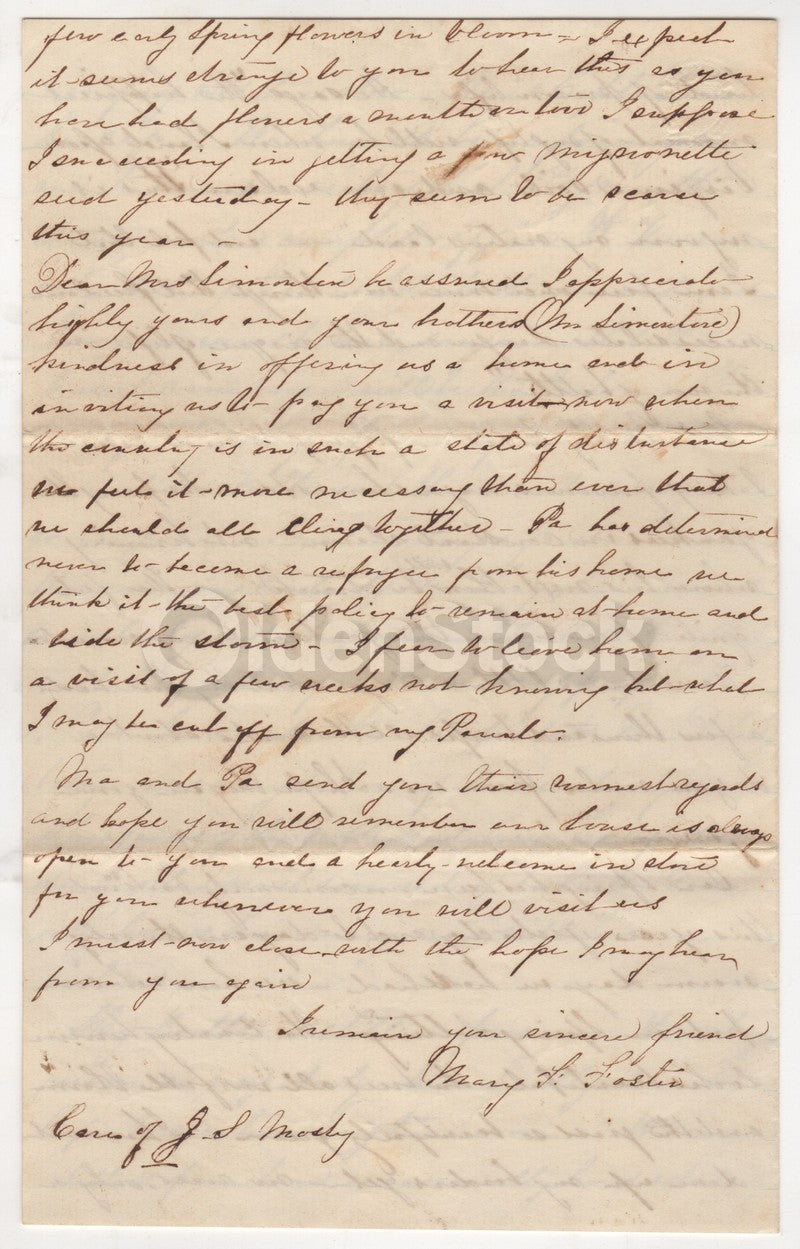 few early Spring flowers in bloom - I expect
it seems strange to you to hear this as you
have had flowers a month or two I suppose
I succeeding in getting a few mignonette
seed yesterday - they seem to be scarce
this year -
Dear Mrs Simonton be assured I appreciate
highly yours and your brothers (Mr Simonton)
kindness in offering us a home and in
inviting us to pay you a visit now when
the country is in such a state of disturbance
we feel it more necessary than ever that
we should all cling together - Pa has determined
never to become a refugee from his home we
think it the best policy to remain at home and
bide the storm - I fear to leave home on
a visit of a few weeks not knowing but what
I may be cut off from my Parents.
Ma and Pa send you their warmest regards
and hope you will remember our house is always
open to you and a hearty welcome in store
for you whenever you will visit us
I must now close with the hope I may hear
from you again
I remain your sincere friend
Mary F. Foster
Care of J S Mosby
OldenStock